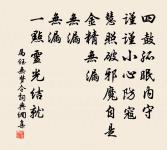 四鼓孤眠内守
謹謹小心防寇
慧照破邪魔自是
金精無漏
無漏
無漏
一點靈光結就
馬鈺無夢令